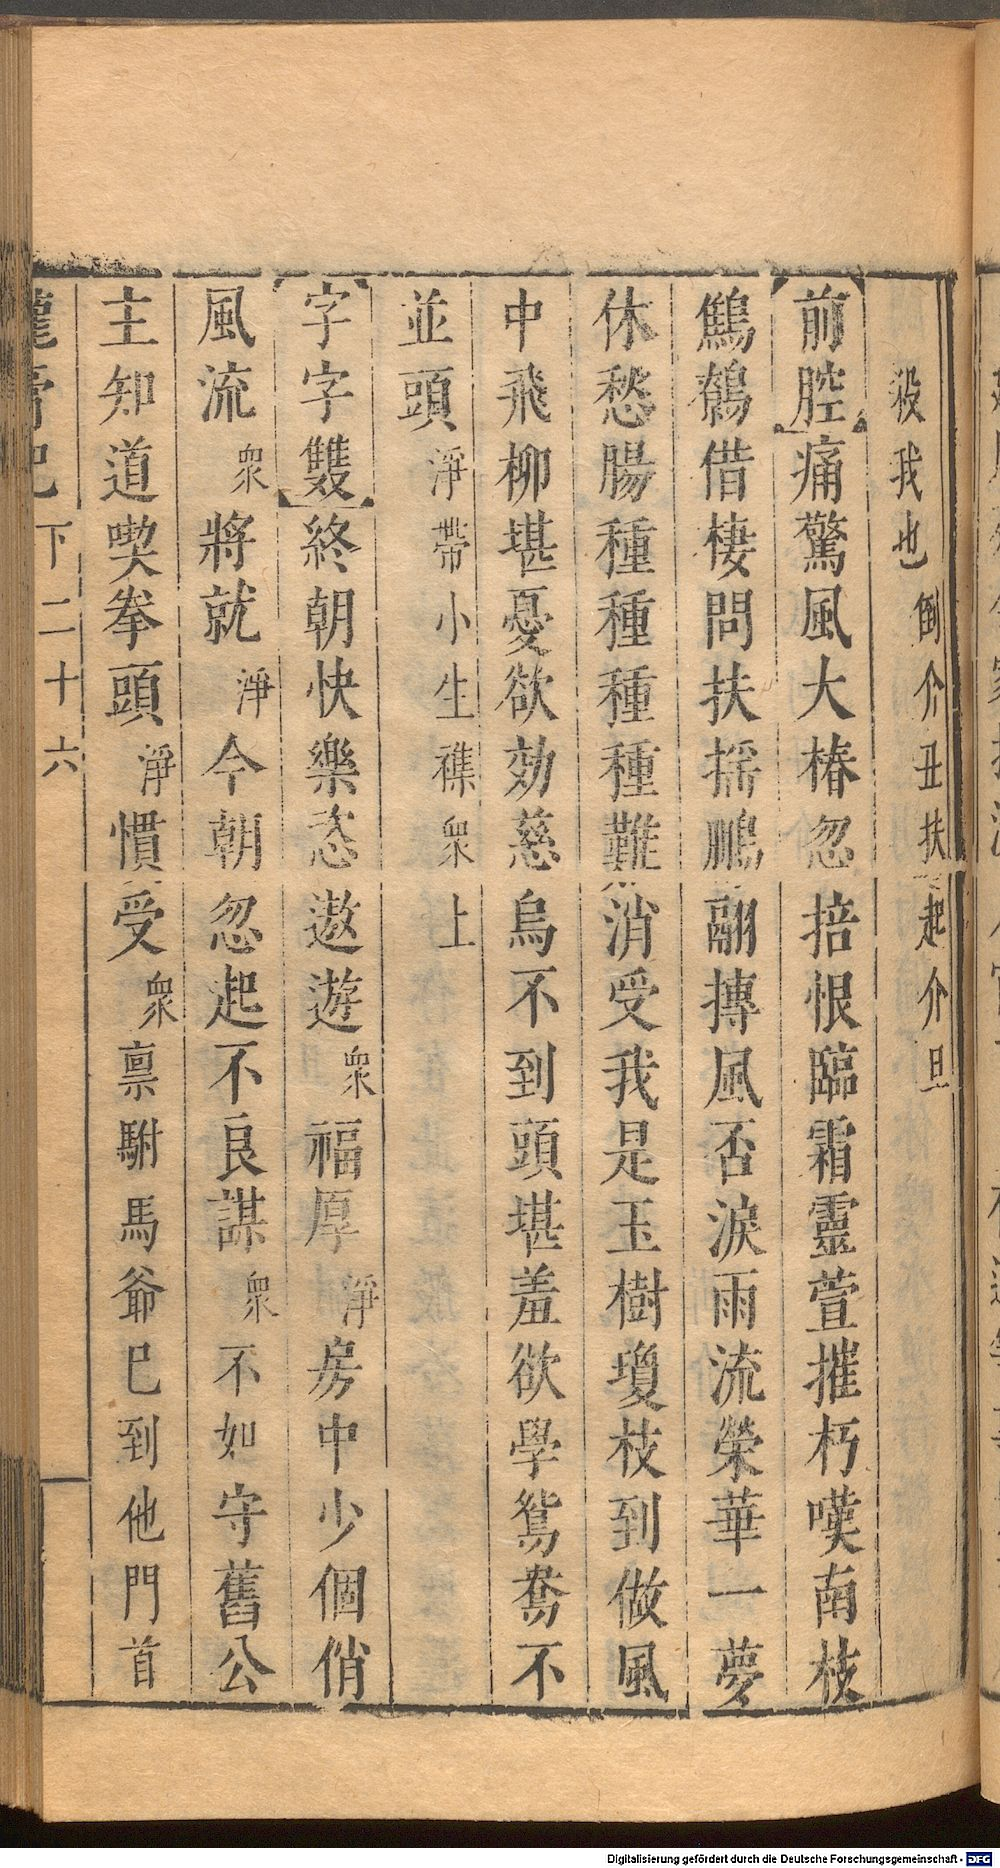 殺我也倒介丑扶起介旦
前腔痛驚風大椿忽掊恨臨霜靈萱摧朽嘆南枝
鷦鶺借棲問扶搖鵬翮摶風否淚雨流榮華一夢
休愁腸種種種種難消受我是玉樹瓊枝到做風
中飛柳堪憂欲効慈烏不到頭堪羞欲學鴛鴦不
並頭淨帶小生襍衆上
字字雙終朝快樂恣遨遊衆福厚淨房中少個俏
風流衆將就淨今朝忽起不良謀衆不如守舊公
主知道喫拳頭淨慣受衆禀駙馬爺巳到他門首
龍膏記 下 二十六
Digitalisierung gefördert durch die Deutsche Forschungsgemeinschaft - DFG